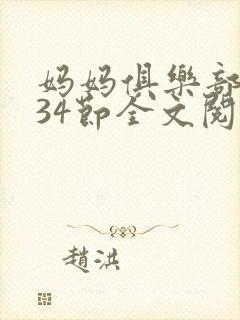 妈妈俱樂部
34節全文閱
趙洪